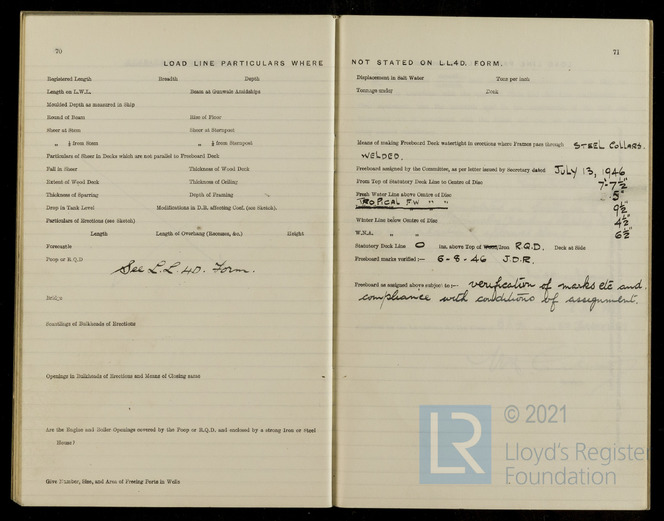 70
LOAD LINE PARTICULARS WHERE
Registered Length Breadth Depth
Length on L.W.L. Beam at Gunwale Amidships
Moulded Depth as measured in Ship
Round of Beam Rise of Floor
Sheer at Stem Sheer at Sternpost
„ ⅛ from Stem „ ⅛ from Sternpost
Particulars of Sheer in Decks which are not parallel to Freeboard Deck
Fall in Sheer Thickness of Wood Deck
Extent of Wood Deck Thickness of Ceiling
Thickness of Sparring Depth of Framing
Drop in Tank Level Modifications in D.R. affecting Coef. (see Sketch).
Particulars of Erections (see Sketch)
Length Length of Overhang (Recesses, &c.) Height
Forecastle
Poop or R.Q.D
See L.L. 4D. Form.
Bridge
Scantlings of Bulkheads of Erections
Openings in Bulkheads of Erections and Means of Closing same
Are the Engine and Boiler Openings covered by the Poop or R.Q.D. and enclosed by a strong Iron or Steel
House?
Give Number, Size, and Area of Freeing Ports in Wells
71
NOT STATED ON LL.4D. FORM.
Displacement in Salt Water Tons per inch
Tonnage under Deck
Means of making Freeboard Deck watertight in erections where Frames pass through STEEL COLLARS.
WELDED.
Freeboard assigned by the Committee, as per letter issued by Secretary dated JULY 13, 1946
From Top of Statutory Deck Line to Centre of Disc 7'-7½"
Fresh Water Line above Centre of Disc 5"
TROPICAL F.W. „ „ 9½"
Winter Line below Centre of Disc 4½"
W.N.A. „ „ 6½"
Statutory Deck Line 0 ins. above Top of Wood/Iron R.Q.D. Deck at Side
Freeboard marks verified :— 6-8-46 J.D.R.
Freeboard as assigned above subject to :— verification of marks etc and
compliance with conditions of assignment.
LR © 2021
Lloyd's Register
Foundation